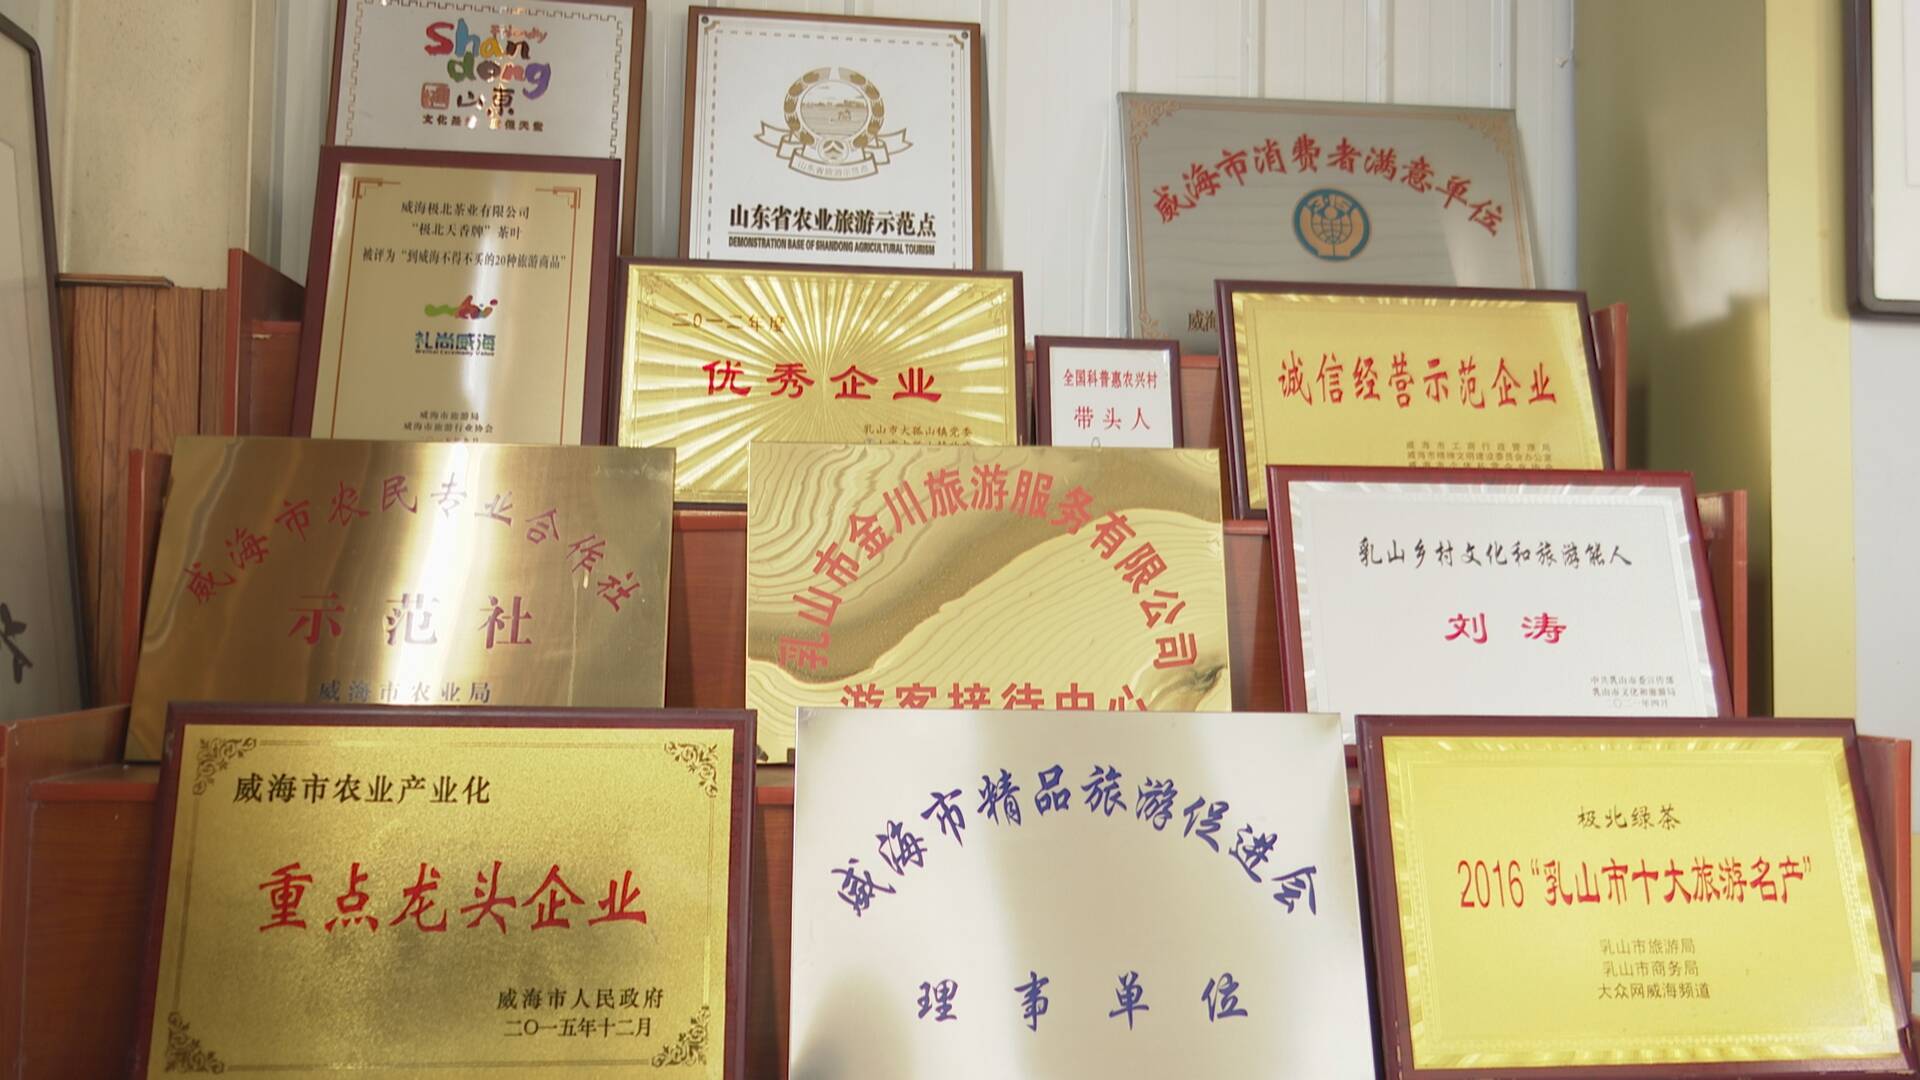 Friendly
Shan
dong
山東
山东省旅游示范点
山东省农业旅游示范点
DEMONSTRATION BASE OF SHANDONG AGRICULTURAL TOURISM
威海市消费者满意单位
威海极北茶业有限公司
“极北天香牌”茶叶
被评为“到威海不得不买的20种旅游商品”
礼尚威海
威海市旅游局
威海市旅游行业协会
二〇一二年度
优秀企业
乳山市大孤山镇党委
全国科普惠农兴村
带头人
诚信经营示范企业
威海市工商行政管理局
威海市精神文明建设委员会办公室
威海市农民专业合作社
示范社
威海市农业局
乳山市金川旅游服务有限公司
游客接待中心
乳山乡村文化和旅游能人
刘涛
中共乳山市委宣传部
乳山市文化和旅游局
二〇二一年四月
威海市农业产业化
重点龙头企业
威海市人民政府
二〇一五年十二月
威海市精品旅游促进会
理事单位
极北绿茶
2016“乳山市十大旅游名产”
乳山市旅游局
乳山市商务局
大众网威海频道